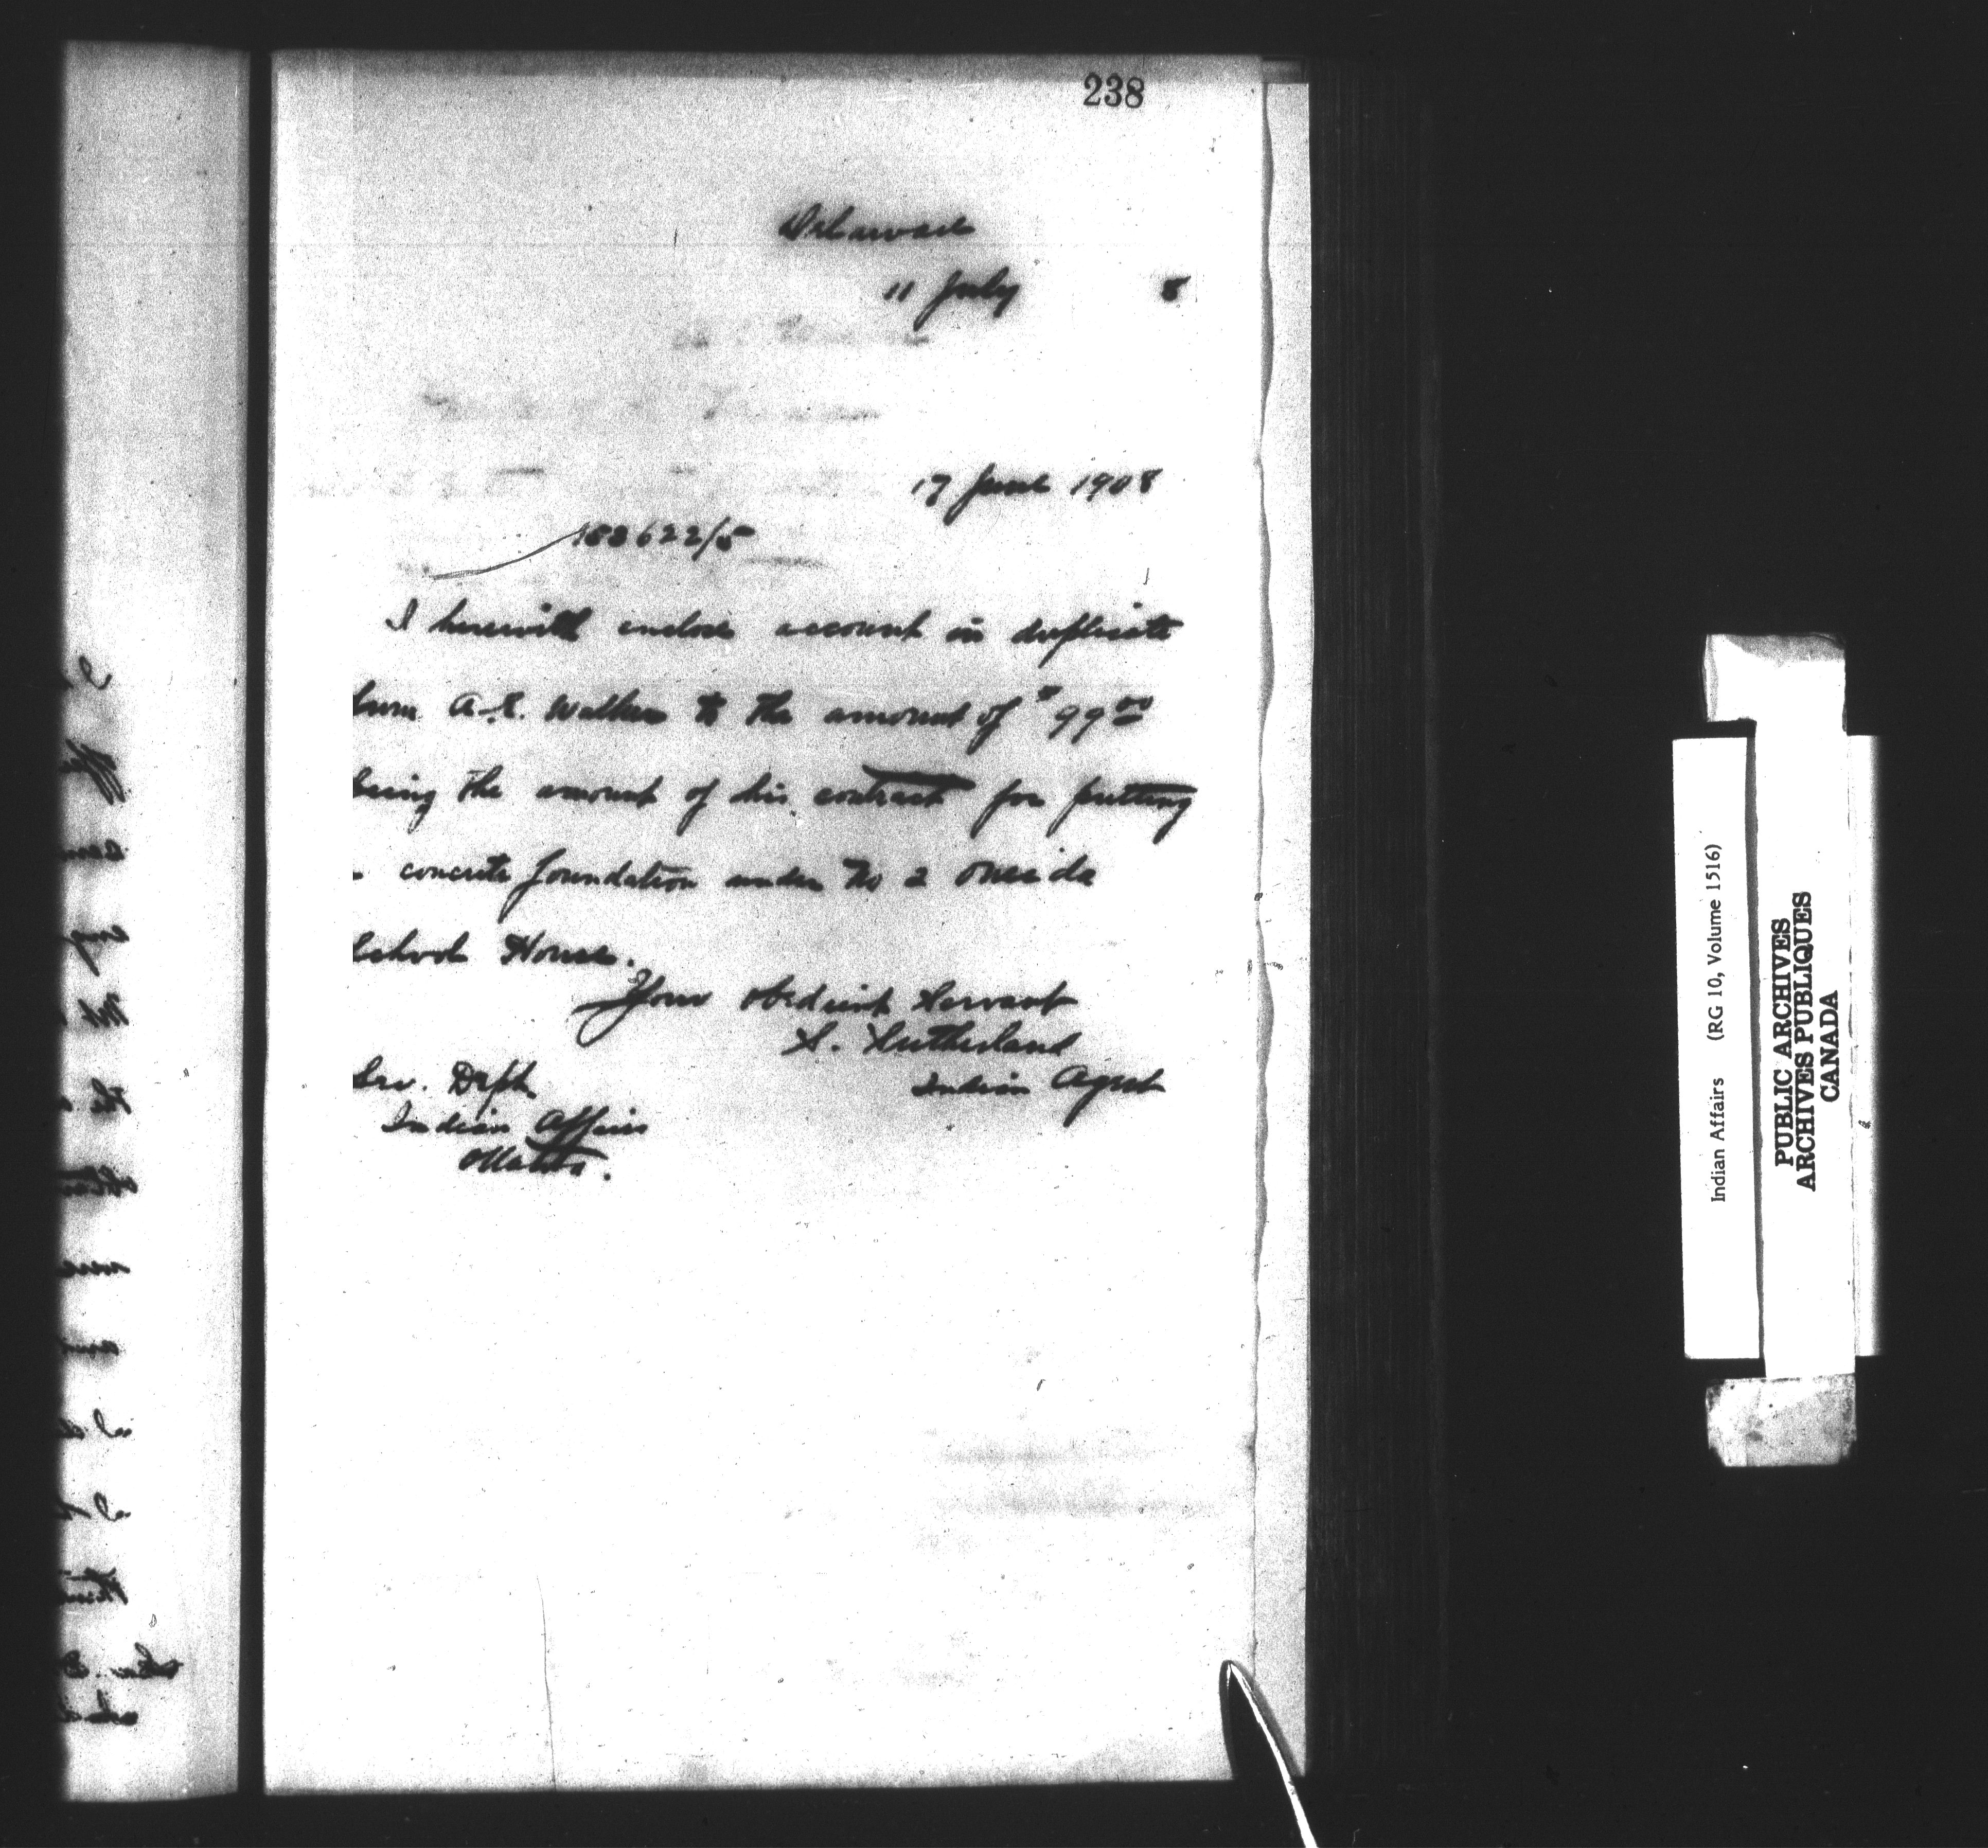 238
Delaware
11 July 8
17 June 1908
153622/5
I herewith enclose account in duplicate
from A.E. Walker to the amount of $99.00
being the amount of his contract for putting
concrete foundation under No 2 Oneida
School House.
Your obedient Servant
S. Sutherland
Indian Agent
Sec. Dept.
Indian Affairs
Ottawa.
Indian Affairs (RG 10, Volume 1516)
PUBLIC ARCHIVES
ARCHIVES PUBLIQUES
CANADA